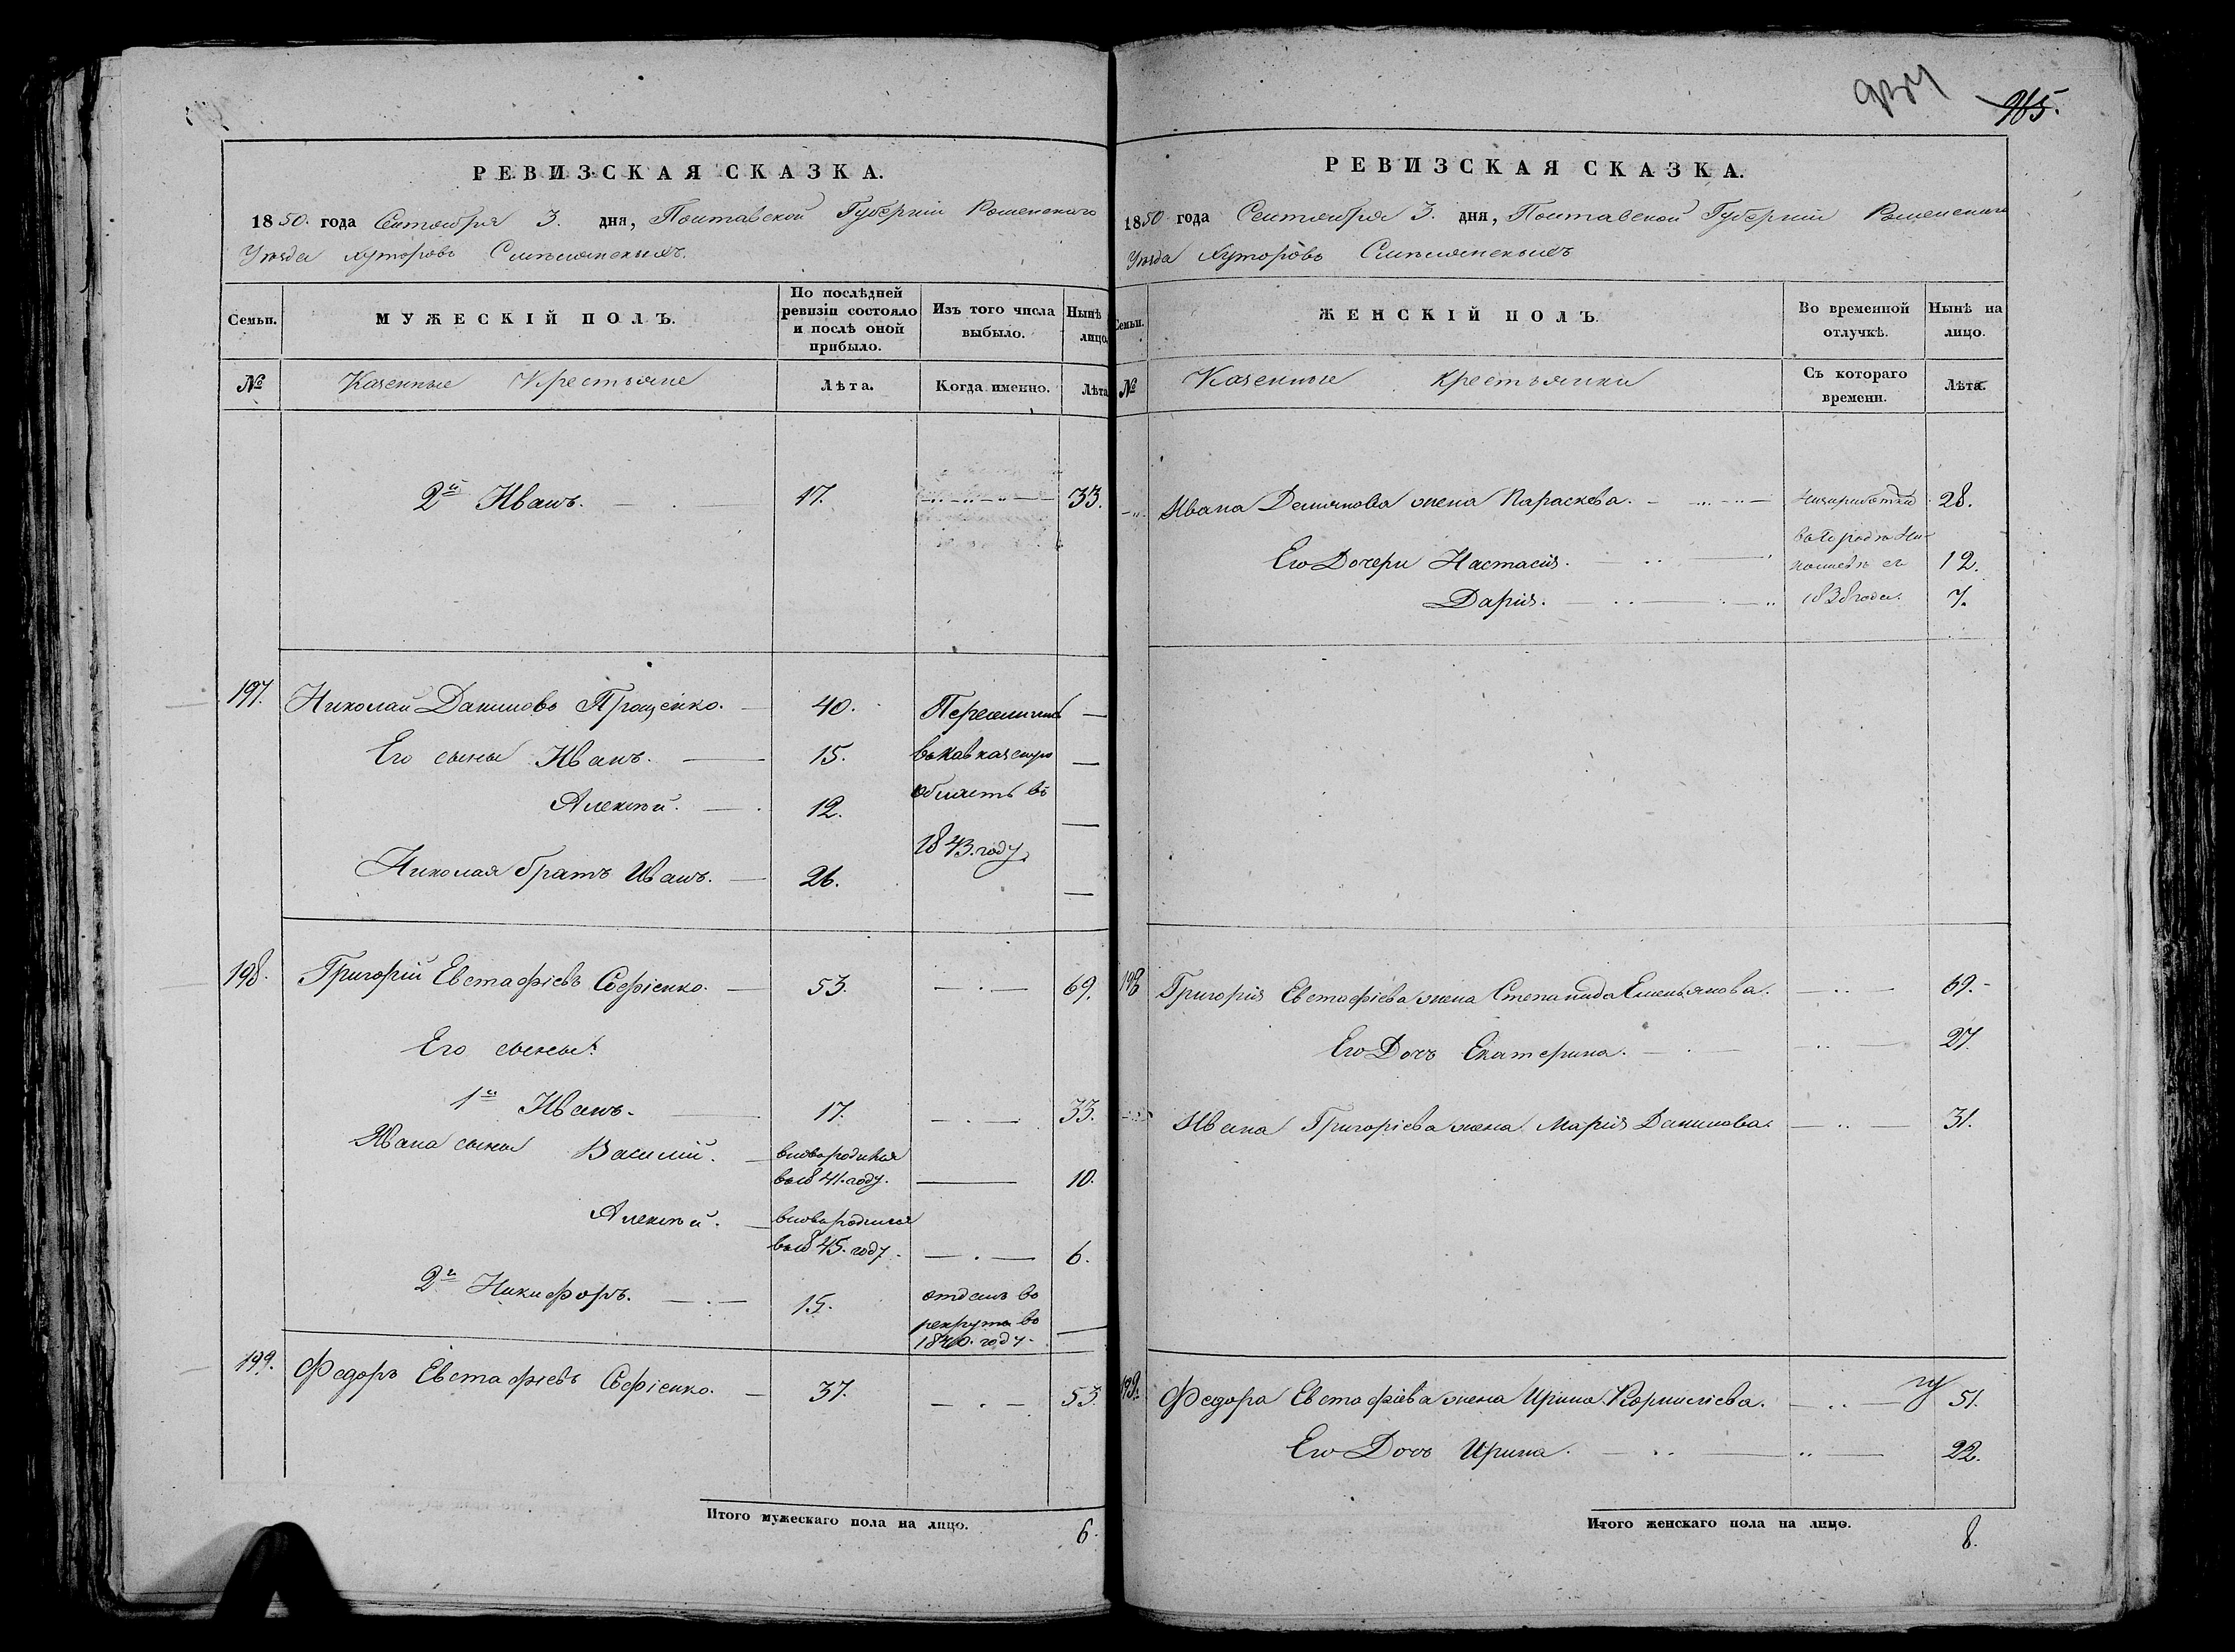 РЕВИЗСКАЯ СКАЗКА.
1850. года Сентября 3. дня, Полтавской Губерніи Роменскаго
Уѣзда хуторовъ
Семьи.
МУЖЕСКІЙ ПОЛЪ.
По послѣдней ревизіи состояло и послѣ оной прибыло.
Изъ того числа выбыло.
Нынѣ лицо.
№
Казенные Крестьяне
Лѣта.
Когда именно.
Лѣта
2й Иванъ. 17. 33.
197. Николай Даниловъ Прощенко. 40. Перечислены
Его сыны Иванъ. 15. въ Кавказскую
Алексѣй. 12. область въ
1843. году
Николая братъ Иванъ. 26.
198. Григорій Евстафіевъ Софіенко. 53. 69.
Его сыны:
1й Иванъ. 17. 33.
Ивана сыны Василій. вновь родился
въ 1841. году. 10.
Алексѣй. вновь родился
въ 1845. году. 6.
2й Никифоръ. 15. отданъ въ
рекруты въ
1840. году.
199. Федоръ Евстафіевъ Софіенко. 37. 53.
Итого мужескаго пола на лицо. 6.
965.
РЕВИЗСКАЯ СКАЗКА.
1850 года Сентября 3. дня, Полтавской Губерніи Роменскаго
Уѣзда Хуторовъ
Семьи.
ЖЕНСКІЙ ПОЛЪ.
Во временной отлучкѣ.
Нынѣ на лицо.
№
Казенные Крестьянки
Съ котораго времени.
Лѣта.
Ивана Демянова жена Параскева. 28.
Его Дочери Настасія. 12.
Дарія. 1838 года. 7.
198 Григорія Евстафіева жена Степанида Емельянова. 69.
Его Дочь Екатерина. 27.
Ивана Григоріева жена Марія Данилова. 31.
199. Федора Евстафіева жена Ирина Корниліева. 51.
Его Дочь Ирина. 22.
Итого женскаго пола на лицо. 8.